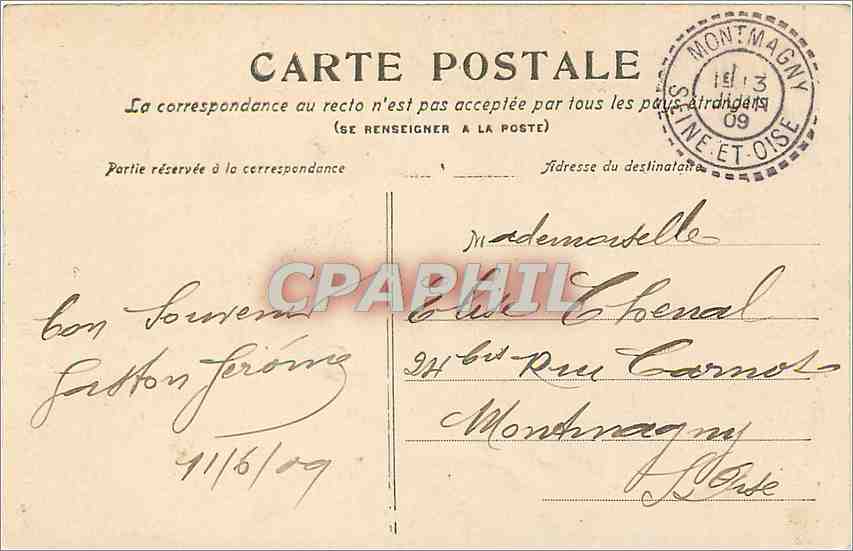 CARTE POSTALE
La correspondance au recto n'est pas acceptée par tous les pays étrangers
(SE RENSEIGNER A LA POSTE)
Partie réservée à la correspondance
Adresse du destinataire
MONTMAGNY
13
JUIN
09
SEINE-ET-OISE
CPAPHIL
bon Souvenir
Gaston Jérôme
11/6/09
Mademoiselle
Elise Chenal
24 bis Rue Carnot
Montmagny
S. Oise